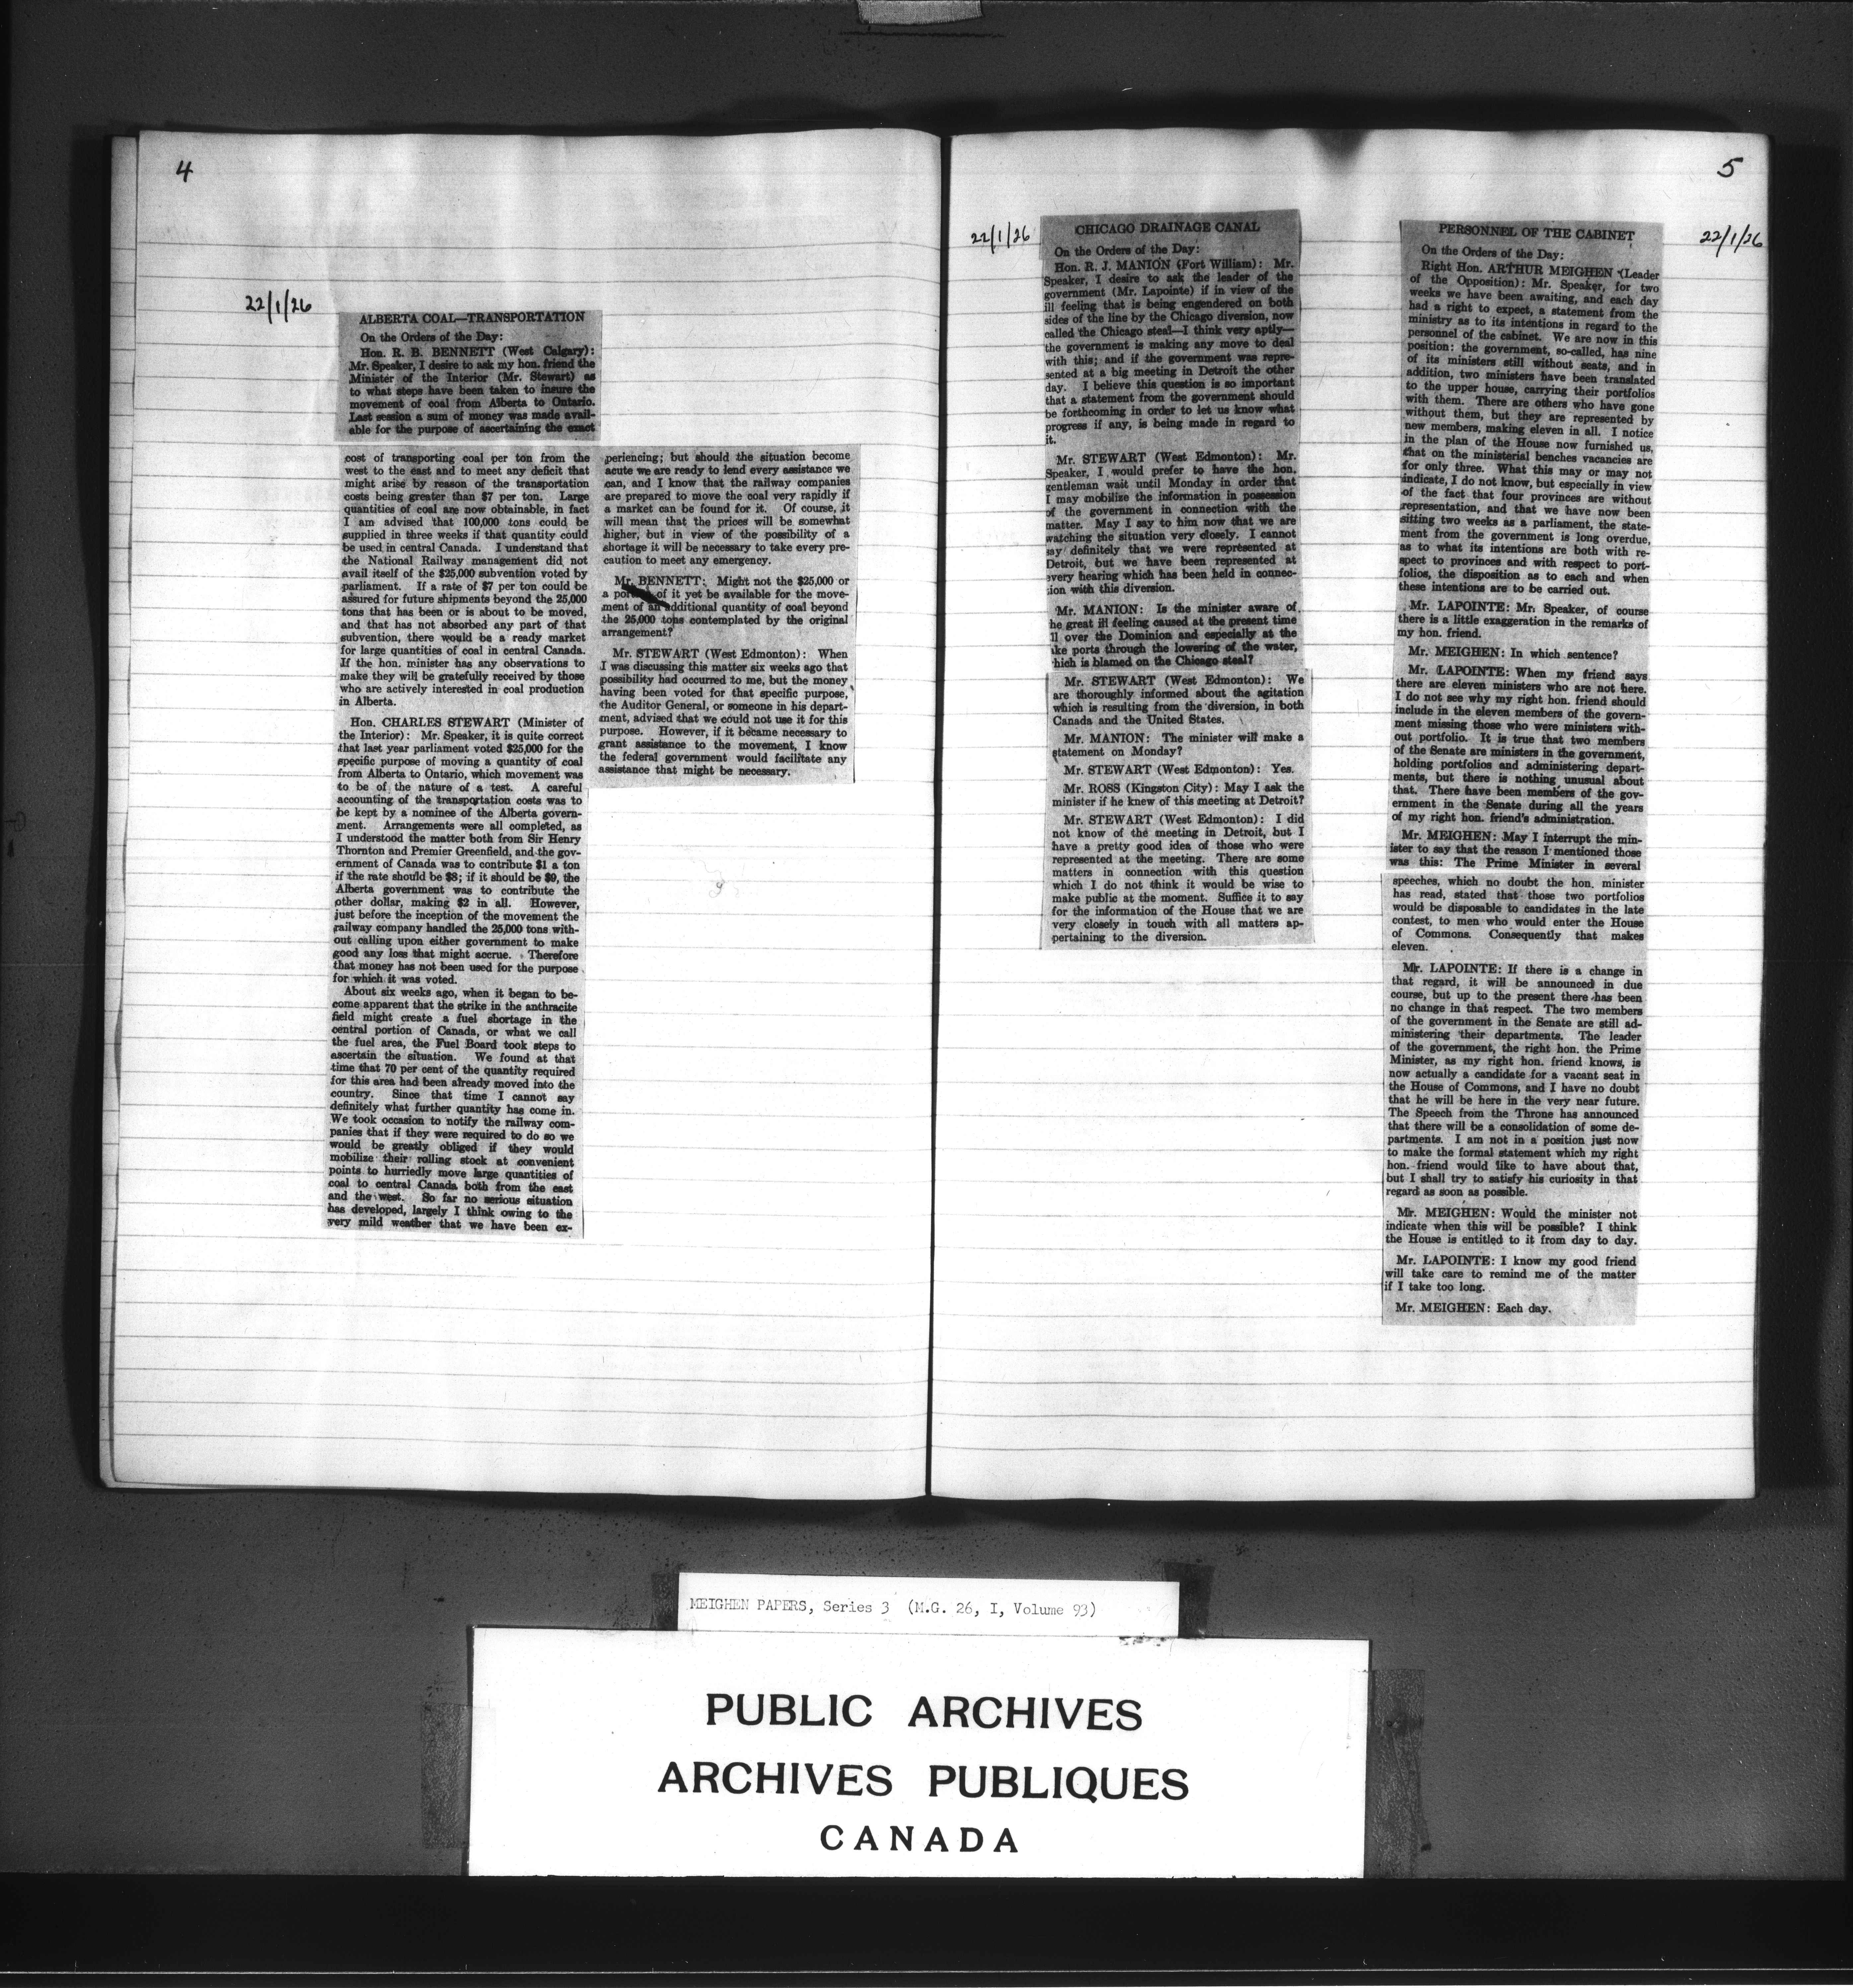 4
22/1/26
ALBERTA COAL—TRANSPORTATION
On the Orders of the Day:
Hon. R. B. BENNETT (West Calgary):
Mr. Speaker, I desire to ask my hon. friend the
Minister of the Interior (Mr. Stewart) as
to what steps have been taken to insure the
movement of coal from Alberta to Ontario.
Last session a sum of money was made avail-
able for the purpose of ascertaining the exact
cost of transporting coal per ton from the
west to the east and to meet any deficit that
might arise by reason of the transportation
costs being greater than $7 per ton. Large
quantities of coal are now obtainable, in fact
I am advised that 100,000 tons could be
supplied in three weeks if that quantity could
be used in central Canada. I understand that
the National Railway management did not
avail itself of the $25,000 subvention voted by
parliament. If a rate of $7 per ton could be
assured for future shipments beyond the 25,000
tons that has been or is about to be moved,
and that has not absorbed any part of that
subvention, there would be a ready market
for large quantities of coal in central Canada.
If the hon. minister has any observations to
make they will be gratefully received by those
who are actively interested in coal production
in Alberta.
Hon. CHARLES STEWART (Minister of
the Interior): Mr. Speaker, it is quite correct
that last year parliament voted $25,000 for the
specific purpose of moving a quantity of coal
from Alberta to Ontario, which movement was
to be of the nature of a test. A careful
accounting of the transportation costs was to
be kept by a nominee of the Alberta govern-
ment. Arrangements were all completed, as
I understood the matter both from Sir Henry
Thornton and Premier Greenfield, and the gov-
ernment of Canada was to contribute $1 a ton
if the rate should be $8; if it should be $9, the
Alberta government was to contribute the
other dollar, making $2 in all. However,
just before the inception of the movement the
railway company handled the 25,000 tons with-
out calling upon either government to make
good any loss that might accrue. Therefore
that money has not been used for the purpose
for which it was voted.
About six weeks ago, when it began to be-
come apparent that the strike in the anthracite
field might create a fuel shortage in the
central portion of Canada, or what we call
the fuel area, the Fuel Board took steps to
ascertain the situation. We found at that
time that 70 per cent of the quantity required
for this area had been already moved into the
country. Since that time I cannot say
definitely what further quantity has come in.
We took occasion to notify the railway com-
panies that if they were required to do so we
would be greatly obliged if they would
mobilize their rolling stock at convenient
points to hurriedly move large quantities of
coal to central Canada both from the east
and the west. So far no serious situation
has developed, largely I think owing to the
very mild weather that we have been ex-
periencing; but should the situation become
acute we are ready to lend every assistance we
can, and I know that the railway companies
are prepared to move the coal very rapidly if
a market can be found for it. Of course, it
will mean that the prices will be somewhat
higher, but in view of the possibility of a
shortage it will be necessary to take every pre-
caution to meet any emergency.
Mr. BENNETT: Might not the $25,000 or
a of it yet be available for the move-
ment of an additional quantity of coal beyond
the 25,000 tons contemplated by the original
arrangement?
Mr. STEWART (West Edmonton): When
I was discussing this matter six weeks ago that
possibility had occurred to me, but the money
having been voted for that specific purpose,
the Auditor General, or someone in his depart-
ment, advised that we could not use it for this
purpose. However, if it became necessary to
grant assistance to the movement, I know
the federal government would facilitate any
assistance that might be necessary.
5
22/1/26
CHICAGO DRAINAGE CANAL
On the Orders of the Day:
Hon. R. J. MANION (Fort William): Mr.
Speaker, I desire to ask the leader of the
government (Mr. Lapointe) if in view of the
ill feeling that is being engendered on both
sides of the line by the Chicago diversion, now
called the Chicago steal—I think very aptly—
the government is making any move to deal
with this; and if the government was repre-
sented at a big meeting in Detroit the other
day. I believe this question is so important
that a statement from the government should
be forthcoming in order to let us know what
progress if any, is being made in regard to
it.
Mr. STEWART (West Edmonton): Mr.
Speaker, I would prefer to have the hon.
gentleman wait until Monday in order that
I may mobilize the information in possession
of the government in connection with the
matter. May I say to him now that we are
watching the situation very closely. I cannot
say definitely that we were represented at
Detroit, but we have been represented at
every hearing which has been held in connec-
tion with this diversion.
Mr. MANION: Is the minister aware of
he great ill feeling caused at the present time
ll over the Dominion and especially at the
ke ports through the lowering of the water,
hich is blamed on the Chicago steal?
Mr. STEWART (West Edmonton): We
are thoroughly informed about the agitation
which is resulting from the diversion, in both
Canada and the United States.
Mr. MANION: The minister will make a
statement on Monday?
Mr. STEWART (West Edmonton): Yes.
Mr. ROSS (Kingston City): May I ask the
minister if he knew of this meeting at Detroit?
Mr. STEWART (West Edmonton): I did
not know of the meeting in Detroit, but I
have a pretty good idea of those who were
represented at the meeting. There are some
matters in connection with this question
which I do not think it would be wise to
make public at the moment. Suffice it to say
for the information of the House that we are
very closely in touch with all matters ap-
pertaining to the diversion.
22/1/26
PERSONNEL OF THE CABINET
On the Orders of the Day:
Right Hon. ARTHUR MEIGHEN (Leader
of the Opposition): Mr. Speaker, for two
weeks we have been awaiting, and each day
had a right to expect, a statement from the
ministry as to its intentions in regard to the
personnel of the cabinet. We are now in this
position: the government, so-called, has nine
of its ministers still without seats, and in
addition, two ministers have been translated
to the upper house, carrying their portfolios
with them. There are others who have gone
without them, but they are represented by
new members, making eleven in all. I notice
in the plan of the House now furnished us,
that on the ministerial benches vacancies are
for only three. What this may or may not
indicate, I do not know, but especially in view
of the fact that four provinces are without
representation, and that we have now been
sitting two weeks as a parliament, the state-
ment from the government is long overdue,
as to what its intentions are both with re-
spect to provinces and with respect to port-
folios, the disposition as to each and when
these intentions are to be carried out.
Mr. LAPOINTE: Mr. Speaker, of course
there is a little exaggeration in the remarks of
my hon. friend.
Mr. MEIGHEN: In which sentence?
Mr. LAPOINTE: When my friend says
there are eleven ministers who are not here.
I do not see why my right hon. friend should
include in the eleven members of the govern-
ment missing those who were ministers with-
out portfolio. It is true that two members
of the Senate are ministers in the government,
holding portfolios and administering depart-
ments, but there is nothing unusual about
that. There have been members of the gov-
ernment in the Senate during all the years
of my right hon. friend's administration.
Mr. MEIGHEN: May I interrupt the min-
ister to say that the reason I mentioned those
was this: The Prime Minister in several
speeches, which no doubt the hon. minister
has read, stated that those two portfolios
would be disposable to candidates in the late
contest, to men who would enter the House
of Commons. Consequently that makes
eleven.
Mr. LAPOINTE: If there is a change in
that regard, it will be announced in due
course, but up to the present there has been
no change in that respect. The two members
of the government in the Senate are still ad-
ministering their departments. The leader
of the government, the right hon. the Prime
Minister, as my right hon. friend knows, is
now actually a candidate for a vacant seat in
the House of Commons, and I have no doubt
that he will be here in the very near future.
The Speech from the Throne has announced
that there will be a consolidation of some de-
partments. I am not in a position just now
to make the formal statement which my right
hon. friend would like to have about that,
but I shall try to satisfy his curiosity in that
regard as soon as possible.
Mr. MEIGHEN: Would the minister not
indicate when this will be possible? I think
the House is entitled to it from day to day.
Mr. LAPOINTE: I know my good friend
will take care to remind me of the matter
if I take too long.
Mr. MEIGHEN: Each day.
MEIGHEN PAPERS, Series 3 (M.G. 26, I, Volume 93)
PUBLIC ARCHIVES
ARCHIVES PUBLIQUES
CANADA